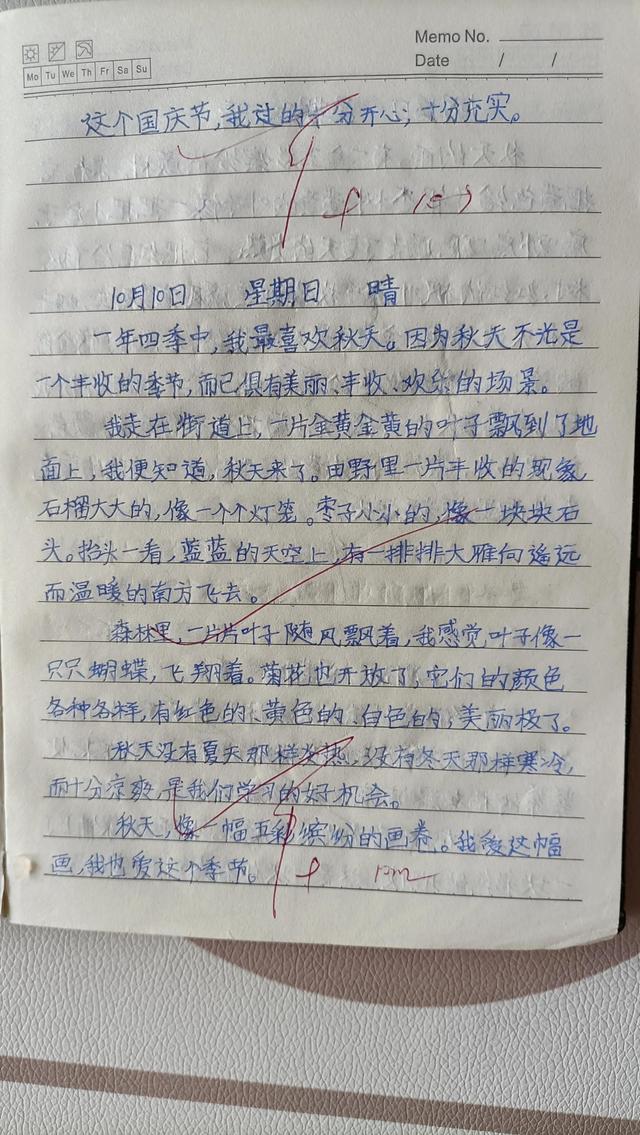 Memo No.
Mo Tu We Th Fr Sa Su
Date / /
这个国庆节,我过的十分开心,十分充实。
10月10日 星期日 晴
一年四季中,我最喜欢秋天。因为秋天不光是
一个丰收的季节,而已俱有美丽、丰收、欢乐的场景。
我走在街道上,一片金黄金黄的叶子飘到了地
面上,我便知道,秋天来了。田野里一片丰收的现象
石榴大大的,像一个个灯笼。枣子小小的,像一块块石
头。抬头一看,蓝蓝的天空上,有一排排大雁向遥远
而温暖的南方飞去。
森林里,一片片叶子随风飘着,我感觉叶子像一
只只蝴蝶,飞翔着。菊花也开放了,它们的颜色
各种各样,有红色的、黄色的、白色的,美丽极了。
秋天没有夏天那样炎热,没有冬天那样寒冷,
而十分凉爽,是我们学习的好机会。
秋天,像一幅五彩缤纷的画卷。我爱这幅
画,我也爱这个季节。